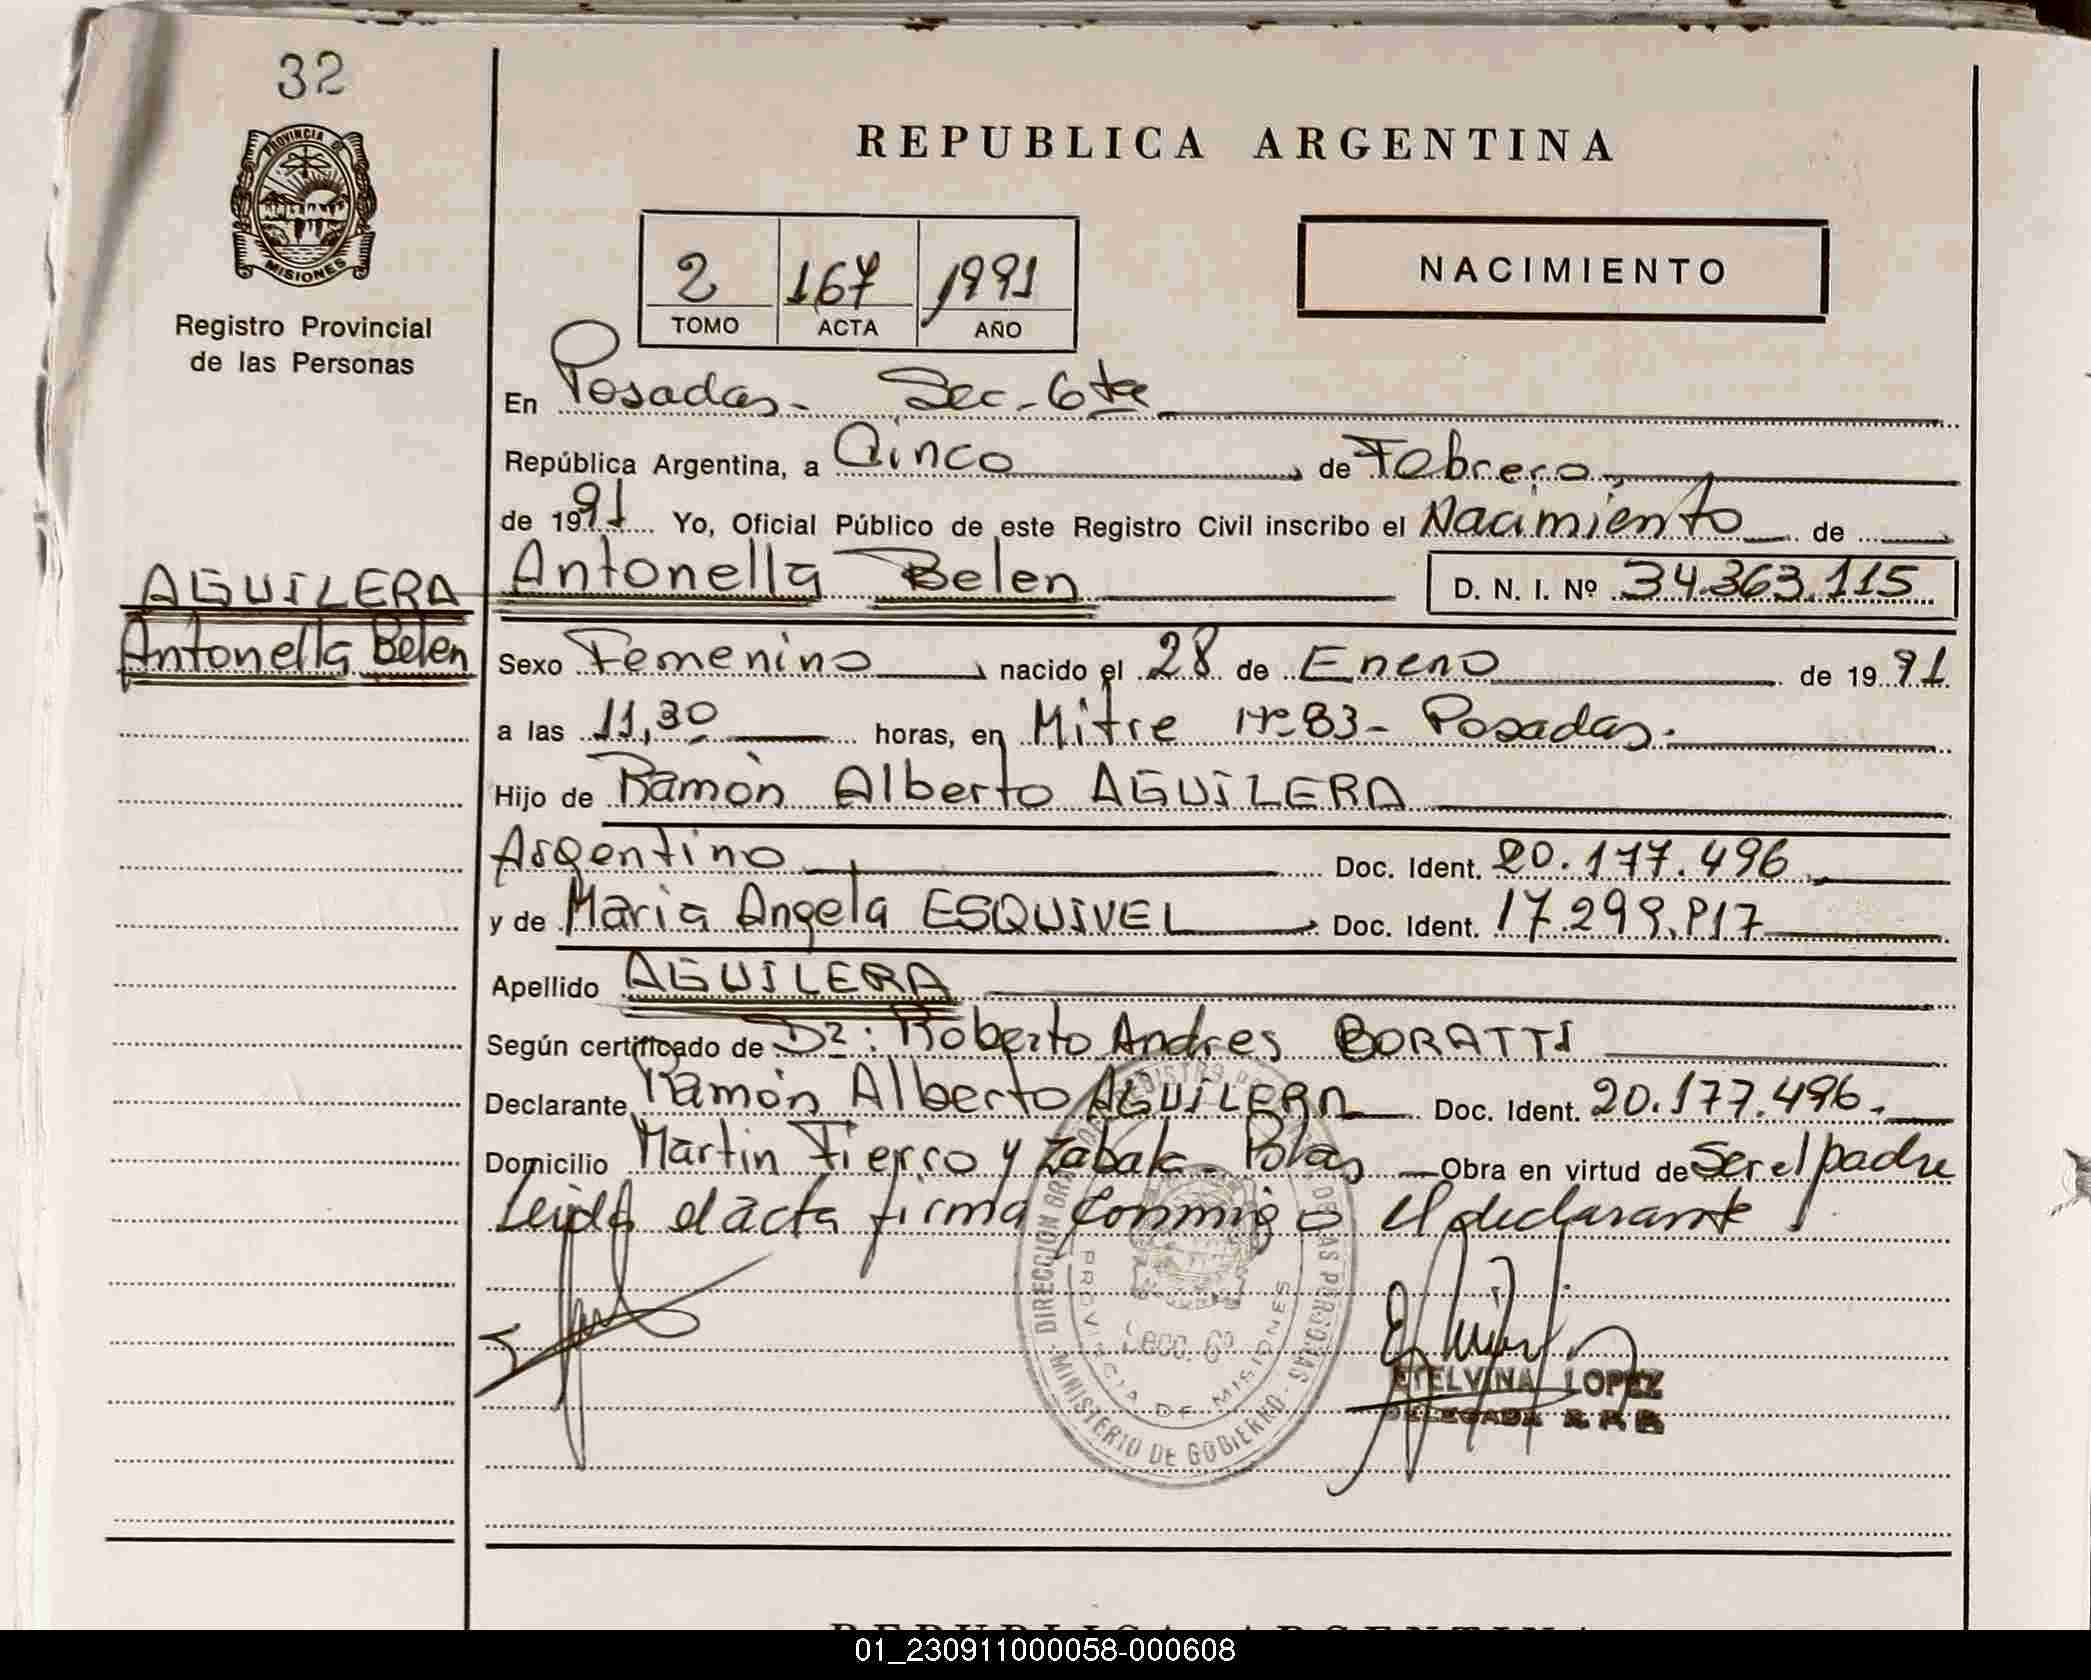 32
PROVINCIA DE
MISIONES
Registro Provincial
de las Personas
REPUBLICA ARGENTINA
2 167 1991
TOMO ACTA AÑO
NACIMIENTO
En Posadas - Sec - 6ta
República Argentina, a Cinco de Febrero
de 1991 Yo, Oficial Público de este Registro Civil inscribo el Nacimiento de
AGUILERA
Antonella Belen
Antonella Belen D. N. I. Nº 34.363.115
Sexo Femenino nacido el 28 de Enero de 1991
a las 11,30 horas, en Mitre Nº 83 - Posadas.
Hijo de Ramón Alberto AGUILERA
Argentino Doc. Ident. 20.177.496
y de Maria Angela ESQUIVEL Doc. Ident. 17.299.817
Apellido AGUILERA
Según certificado de Dr: Roberto Andres BORATTI
Declarante Ramón Alberto AGUILERA Doc. Ident. 20.177.496.
Domicilio Martin Fierro y Zabala - Obra en virtud de Ser el padre
Leida el acta firma conmigo el declarante
DIRECCION REGISTRO DE LAS PERSONAS
PROVINCIA DE MISIONES
Secc. 6ª
MINISTERIO DE GOBIERNO
ETELVINA LOPEZ
DELEGADA R. P. P.
REPUBLICA ARGENTINA
01_230911000058-000608